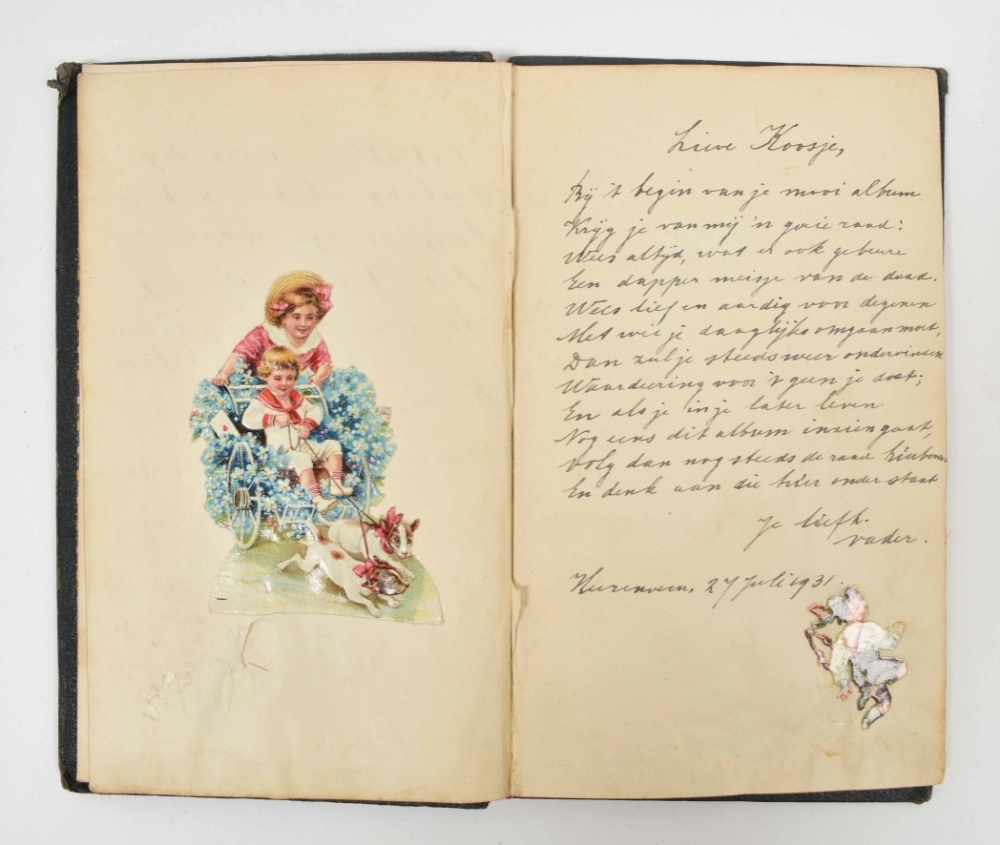 Lieve Koosje,
Bij 't begin van je mooi album
Krijg je van mij 'n goeie raad:
Wees altijd, wat er ook gebeure
Een dapper meisje van de daad.
Wees lief en aardig voor degenen
Met wie je daaglijks omgaan moet,
Dan zul je steeds weer ondervinden
Waardeering voor 't geen je doet;
En als je in je later leven
Nog eens dit album inzien gaat,
Volg dan nog steeds de raad hierboven
En denk aan die hier onder staat
Je liefh.
vader.
Heerenveen, 27 Juli 1931.